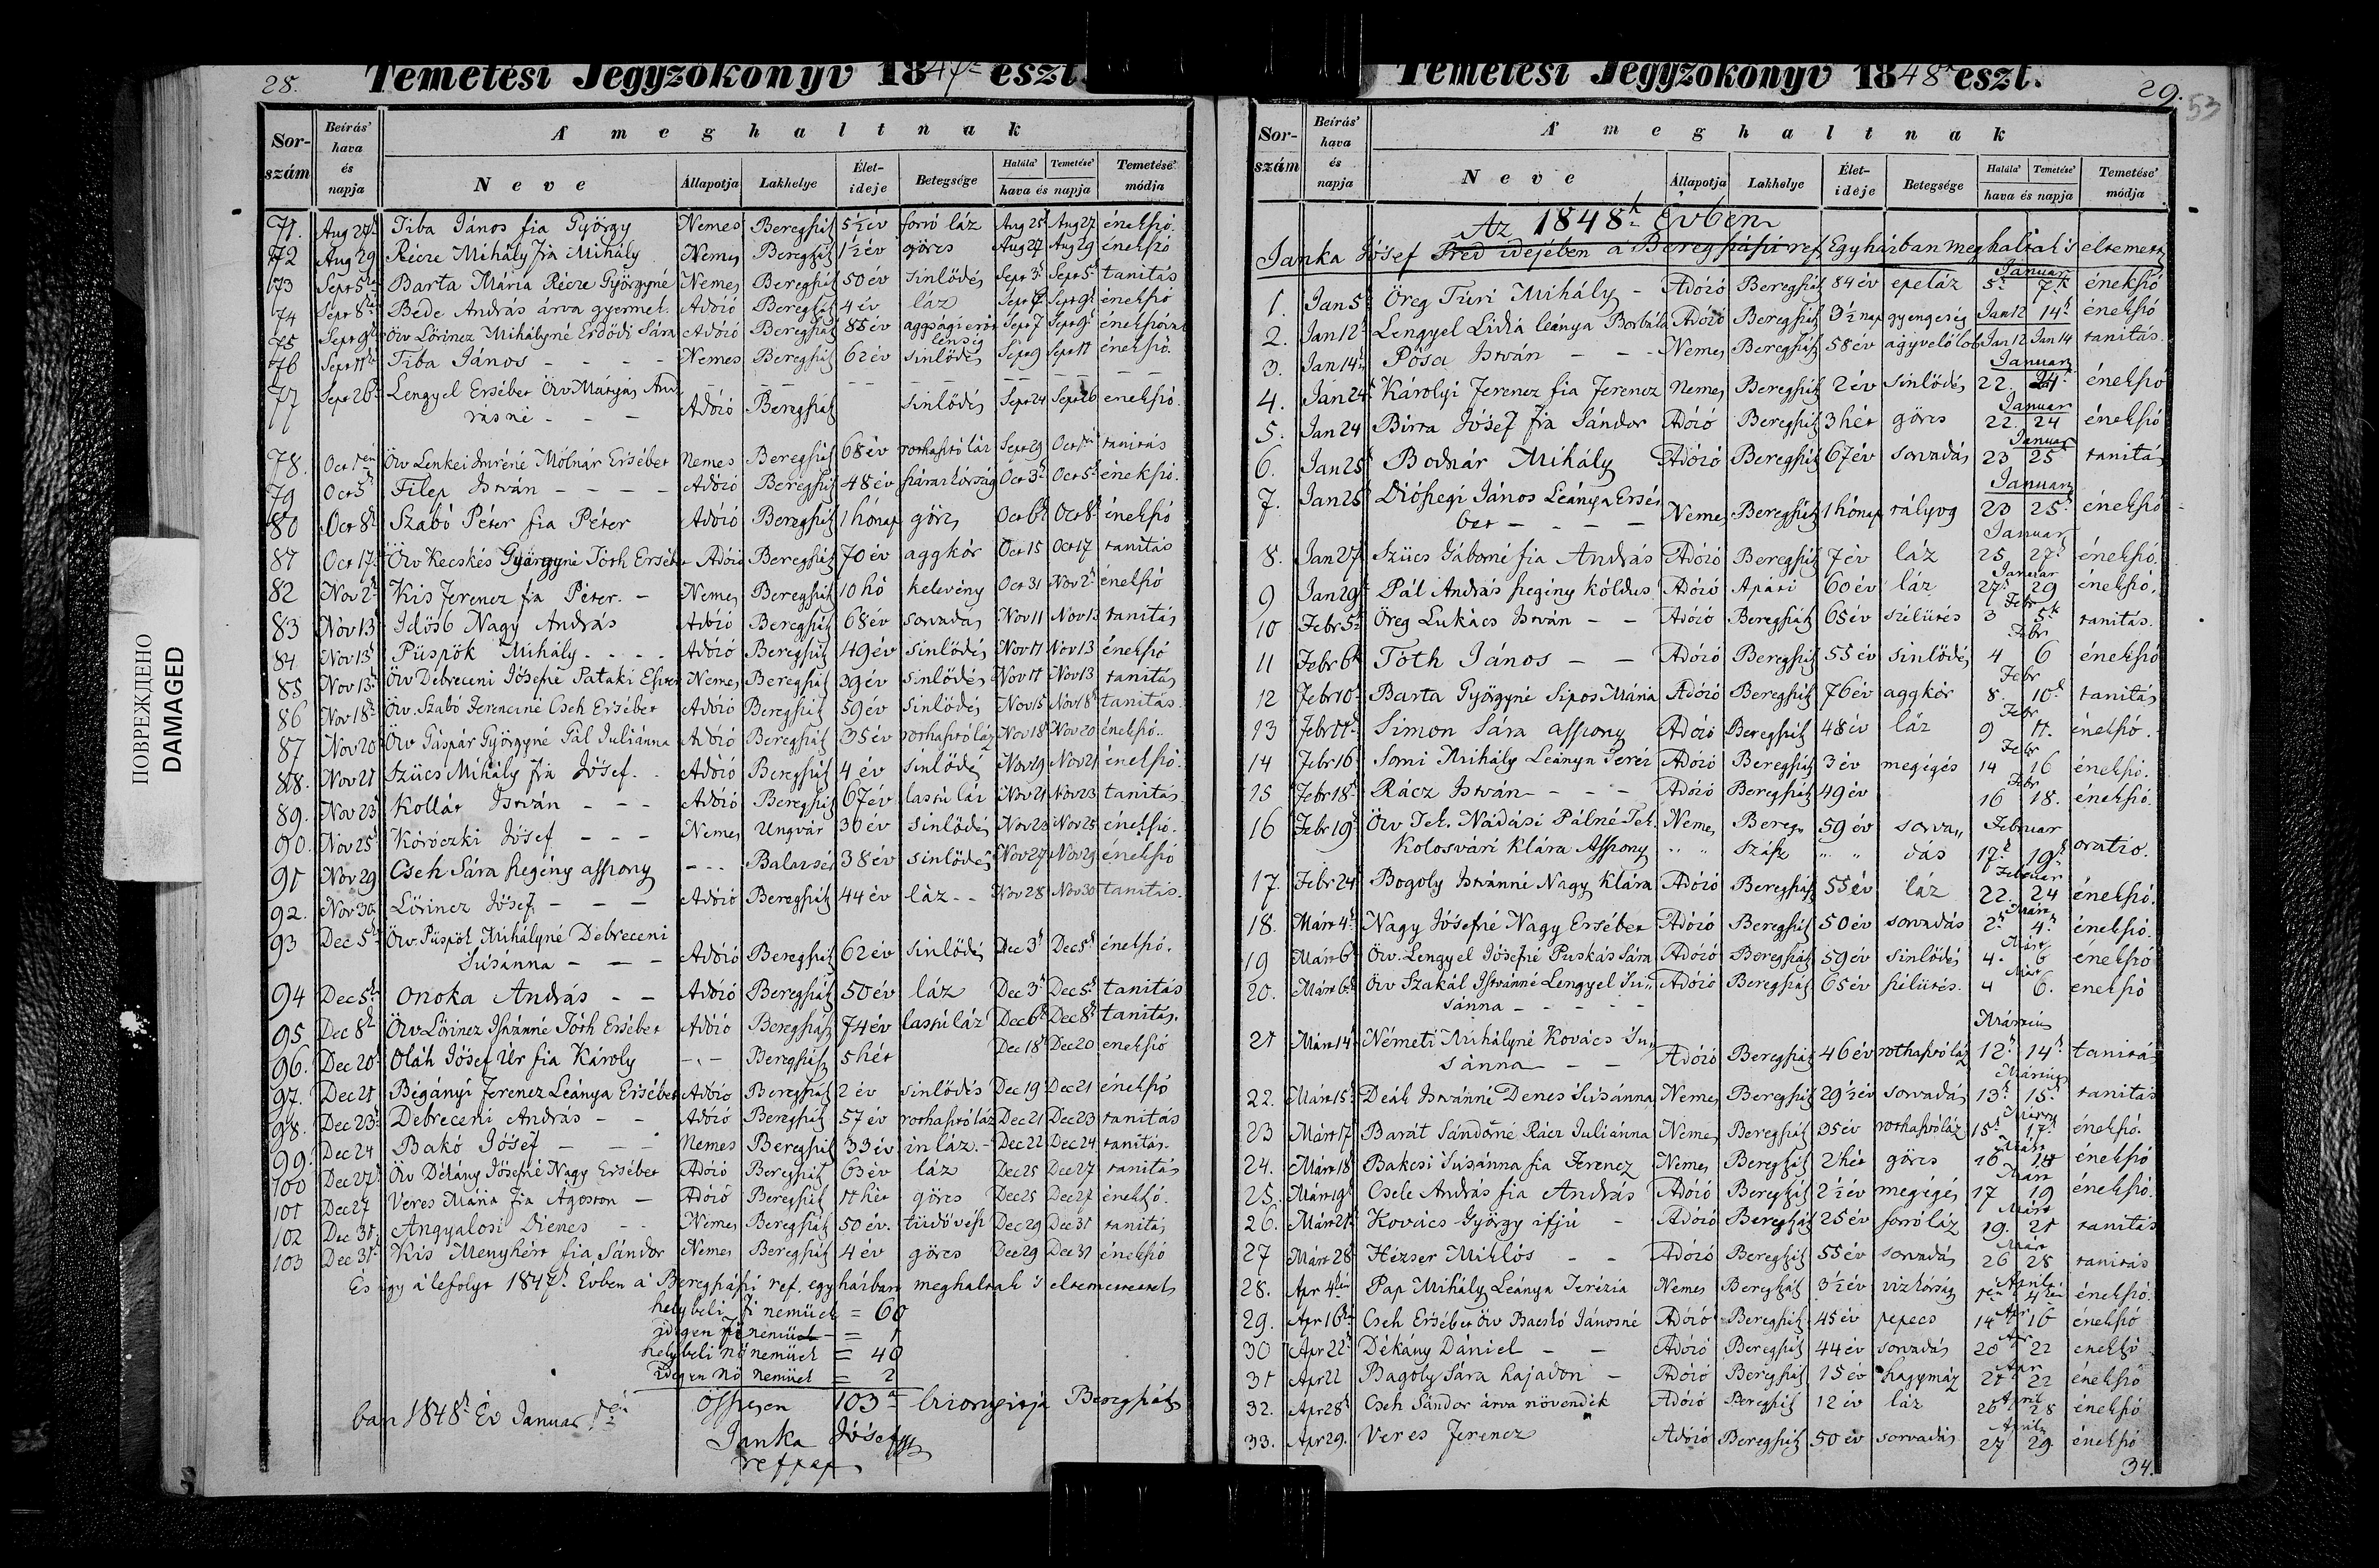 28.
Temetési Jegyzőkönyv 1847 eszt.
Sor-szám Beírás' hava és napja A' meghaltnak
Neve Állapotja Lakhelye Élet-ideje Betegsége Halála' Temetése' hava és napja Temetése' módja
71. Aug 27 Tiba János fia György Nemes Beregszász 5½ év forró láz Aug 25 Aug 27 énekszó.
72 Aug 29 Récze Mihály fia Mihály Nemes Beregszász 1½ év görcs Aug 27 Aug 29 énekszó
73 Sept 5 Barta Mária Récze Györgyné Nemes Beregszász 50 év sinlődés Sept 3 Sept 5 tanitás
74 Sept 8 Bede András árva gyermek. Adózó Beregszász 4 év láz Sept 9 énekszó
75 Sept 9 Özv Lőrincz Mihályné Erdődi Sára Adózó Beregszász 85 év aggsági erőt Sept 7 Sept 9 énekszó
lenség
76 Sept 11 Tiba János - - - - Nemes Beregszász 62 év sinlődés Sept 9 Sept 11 énekszó.
77 Sept 26 Lengyel Ersébet Özv Mátyás And
rásné - - Adózó Beregszász sinlődés Sept 24 Sept 26 énekszó.
78. Oct 1én Özv Lenkei Imréné Mólnár Ersébet Nemes Beregszász 68 év rothasztó láz Sept 29 Oct 1én tanitás
79 Oct 5 Filep István - - - - Adózó Beregszász 48 év szárazkórság Oct 3 Oct 5 énekszó.
80 Oct 8 Szabó Péter fia Péter Adózó Beregszász 1 hónap görcs Oct 6 Oct 8 énekszó
81 Oct 17. Özv Kecskés Györgyné Tóth Ersébet Adózó Beregszász 70 év aggkór Oct 15 Oct 17 tanitás
82 Nov 2 Kis Ferencz fia Péter. - Nemes Beregszász 10 hó kelevény Oct 31 Nov 2 énekszó
83 Nov 13 Idősb Nagy András Adózó Beregszász 68 év sorvadás Nov 11 Nov 13 tanitás
84 Nov 13 Püspök Mihály - - - - Adózó Beregszász 49 év sinlődés Nov 11 Nov 13 énekszó
85 Nov 13 Özv Debreceni Jósefné Pataki Eszter Nemes Beregszász 39 év sinlődés Nov 11 Nov 13 tanitás
86 Nov 18 Özv. Szabó Ferenczné Cseh Ersébet Adózó Beregszász 59 év sinlődés Nov 15 Nov 18 tanitás
87 Nov 20 Özv Gáspár Györgyné Gál Juliánna Adózó Beregszász 35 év rothasztó láz Nov 18 Nov 20 énekszó..
88. Nov 21 Szücs Mihály fia Jósef. - Adózó Beregszász 4 év sinlődés Nov 19 Nov 21 énekszó.
89. Nov 23 Kollát István - - - Adózó Beregszász 67 év lassú láz Nov 21 Nov 23 tanitás.
90. Nov 25 Koróczki Jósef - - - Nemes Ungvár 30 év sinlődés Nov 23 Nov 25 énekszó.
91 Nov 29 Cseh Sára szegény asszony - - - 38 év sinlődés Nov 27 Nov 29 énekszó
92. Nov 30 Lőrincz Jósef - - - Adózó Beregszász 44 év láz - - Nov 28 Nov 30 tanitás.
93 Dec 5 Özv. Püspök Mihályné Debreceni
Susánna - - - Adózó Beregszász 62 év sinlődés Dec 3 Dec 5 énekszó.
94 Dec 5 Onoka András - - Adózó Beregszász 50 év láz Dec 3 Dec 5 tanitás
95. Dec 8 Özv Lőrincz Istvánné Tóth Ersébet Adózó Beregszász 74 év lassú láz Dec 6 Dec 8 tanitás.
96. Dec 20 Oláh Jósef Úr fia Károly - - - Beregszász 5 hét Dec 18 Dec 20 énekszó
97. Dec 21 Bégányi Ferencz Leánya Ersébet Adózó Beregszász 2 év sinlődés Dec 19 Dec 21 énekszó
98. Dec 23 Debreceni András - - Adózó Beregszász 57 év rothasztó láz Dec 21 Dec 23 tanitás
99. Dec 24 Bakó Jósef - - Nemes Beregszász 33 év inláz. - Dec 22 Dec 24 tanitás.
100 Dec 27 Özv Dékány Jósefné Nagy Ersébet Adózó Beregszász 63 év láz Dec 25 Dec 27 tanitás
101 Dec 27 Veres Mária fia Ágoston - Adózó Beregszász 11 hét görcs Dec 25 Dec 27 énekszó.
102 Dec 31 Angyalosi Dienes - - Nemes Beregszász 50 év. tüdővész Dec 29 Dec 31 tanitás
103 Dec 31 Kis Menyhért fia Sándor Nemes Beregszász 4 év görcs Dec 29 Dec 31 énekszó
És így a lefolyt 1847. Évben a' Beregszászi ref. egyházban meghaltak 's eltemettettek
helybeli fi nemüek = 60
idegen fi nemüek = 1
helybeli nő nemüek = 40
idegen nő nemüek = 2
Összesen 103 bizonyítja Beregszász
ban 1848 Év Januar 1én
Janka Jósef
ref pap
29.
53
Temetési Jegyzőkönyv 1848 eszt.
Sor-szám Beírás' hava és napja A' meghaltnak
Neve Állapotja Lakhelye Élet-ideje Betegsége Halála' Temetése' hava és napja Temetése' módja
Az 1848k Évben
Janka Jósef Pred idejében a' Beregszászi ref. Egyházban meghaltak 's eltemett
1. Jan 5 Öreg Túri Mihály - Adózó Beregszász 84 év epeláz Januar 5 7 énekszó
2. Jan 12 Lengyel Lidia leánya Borbála Adózó Beregszász 3½ nap gyengeség Jan 12 14 énekszó
3. Jan 14 Pósa István - - - Nemes Beregszász 58 év agyvelőlob Jan 12 Jan 14 tanitás.
4. Jan 24 Károlyi Ferencz fia Ferencz Nemes Beregszász 2 év sinlődés Januar 22 24 énekszó
5. Jan 24 Birta Jósef fia Sándor Adózó Beregszász 3 hét görcs Januar 22. 24 énekszó
6. Jan 25 Bodnár Mihály Adózó Beregszász 67 év sorvadás Januar 23 25 tanitás
7. Jan 25 Diószegi János Leánya Ersé
bet - - - - Nemes Beregszász 1 hónap tályog Januar 23 25 énekszó
8. Jan 27 Szücs Gáborné fia András Adózó Beregszász 7 év láz Januar 25 27 énekszó.
9 Jan 29 Pál András szegény kóldus Adózó Apáti 60 év láz Januar 27 29 énekszó.
10 Febr 5 Öreg Lukács István - - Adózó Beregszász 65 év szélütés Febr 3 5 tanitás.
11 Febr 6 Tóth János - - Adózó Beregszász 55 év sinlődés Febr 4 6 énekszó
12 Febr 10 Barta Györgyné Sipos Mária Adózó Beregszász 76 év aggkór Febr 8. 10 tanitás
13 Febr 11 Simon Sára asszony Adózó Beregszász 48 év láz Febr 9 11. énekszó.
14 Febr 16 Somi Mihály Leánya Teréz Adózó Beregszász 3 év megégés Febr 14 16 énekszó.
15 Febr 18 Rácz István - - - Adózó Beregszász 49 év Febr 16 18. énekszó.
16 Febr 19 Özv Tek. Nádasi Pálné Tek. Nemes Bereg„ 59 év sorva„ Februar
Kolosvári Klára Asszony „ „ szász „ „ dás 17 19 oratio.
17. Febr 24 Bogoly Istvánné Nagy Klára Adózó Beregszász 55 év láz Februar 22. 24 énekszó.
18. Márt 4 Nagy Jósefné Nagy Ersébet Adózó Beregszász 50 év sorvadás Márt 2 4 énekszó.
19 Márt 6 Özv. Lengyel Jósefné Puskás Sára Adózó Beregszász 59 év sinlődés Márt 4. 6 énekszó
20. Márt 6 Özv Szakál Istvánné Lengyel Su„ Adózó Beregszász 65 év szélütés. Márt 4 6. énekszó
sánna - - - - -
21 Márt 14 Németi Mihályné Kovács Su„
sánna - - Adózó Beregszász 46 év rothasztó láz Márzius 12 14 tanitás
22. Márt 15 Deák Istvánné Denes Susánna Nemes Beregszász 29½ év sorvadás Márzius 13 15 tanitás
23 Márt 17 Barát Sándorné Rácz Juliánna Nemes Beregszász 35 év rothasztó láz 15 17 énekszó.
24. Márt 18 Bakcsi Susánna fia Ferencz Nemes Beregszász 2 hét görcs Márt 16 18 énekszó
25. Márt 19 Csele András fia András Adózó Beregszász 2½ év megégés Márt 17 19 énekszó.
26. Márt 21 Kovács György ifjú - Adózó Beregszász 25 év forró láz Márt 19. 21 tanitás
27 Márt 28 Hézser Miklós - - Adózó Beregszász 55 év sorvadás Márt 26 28 tanitás
28. Apr 4 Pap Mihály Leánya Terézia Nemes Beregszász 3½ év vizkórság Április 1én 4 énekszó.
29. Apr 16 Cseh Ersébet Özv Bacskó Jánosné Adózó Beregszász 45 év repecs Apr 14 16 énekszó
30 Apr 22 Dékány Dániel - - Adózó Beregszász 44 év sorvadás Apr 20 22 énekszó
31 Apr 22 Bagoly Sára hajadon - Adózó Beregszász 15 év hagymáz Apr 21 22 énekszó
32. Apr 28 Cseh Sándor árva növendék Adózó Beregszász 12 év láz April 26 28 énekszó
33. Apr 29. Veres Ferencz Adózó Beregszász 50 év sorvadás April 27 29. énekszó
34.
ПОВРЕЖДЕНО
DAMAGED